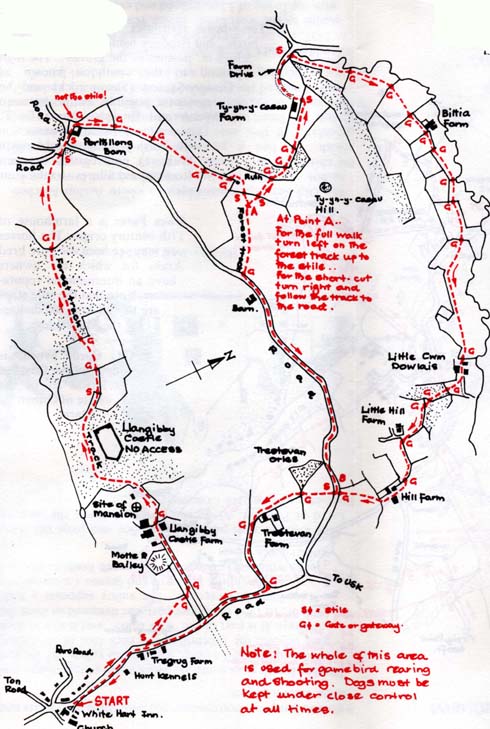 Farm
Drive
S
G
not the stile!
Road
Road
Porthllong
Barn
Ty-yn-y-caeau
Farm
Biltia
Farm
Ruin
S
A
Ty-yn-y-caeau
Hill.
At Point A..
For the full walk
turn left on the
forest track up to
the stile..
For the short-cut
turn right and
follow the track to
the road.
Forest track
Barn.
Forest track
N
Road
Little Cwm
Dowlais
Little Hill
Farm
Llangibby
Castle
NO ACCESS
Track
Trestevan
Gries
Hill Farm
Site of
Mansion
Llangibby
Castle Farm
Trestevan
Farm
Motte &
Bailey
To USK
Road
S = Stile
G = Gate or gateway.
Tregrug Farm
Hunt Kennels
Note: The whole of this area
is used for gamebird rearing
and shooting. Dogs must be
kept under close control
at all times.
Road
Ton
Road
START
White Hart Inn.
Church